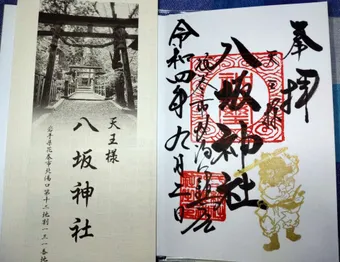 奉拝
八坂神社
令和四年九月二日
天王様
八坂神社
岩手県花巻市北湯口第十二地割一三一番地